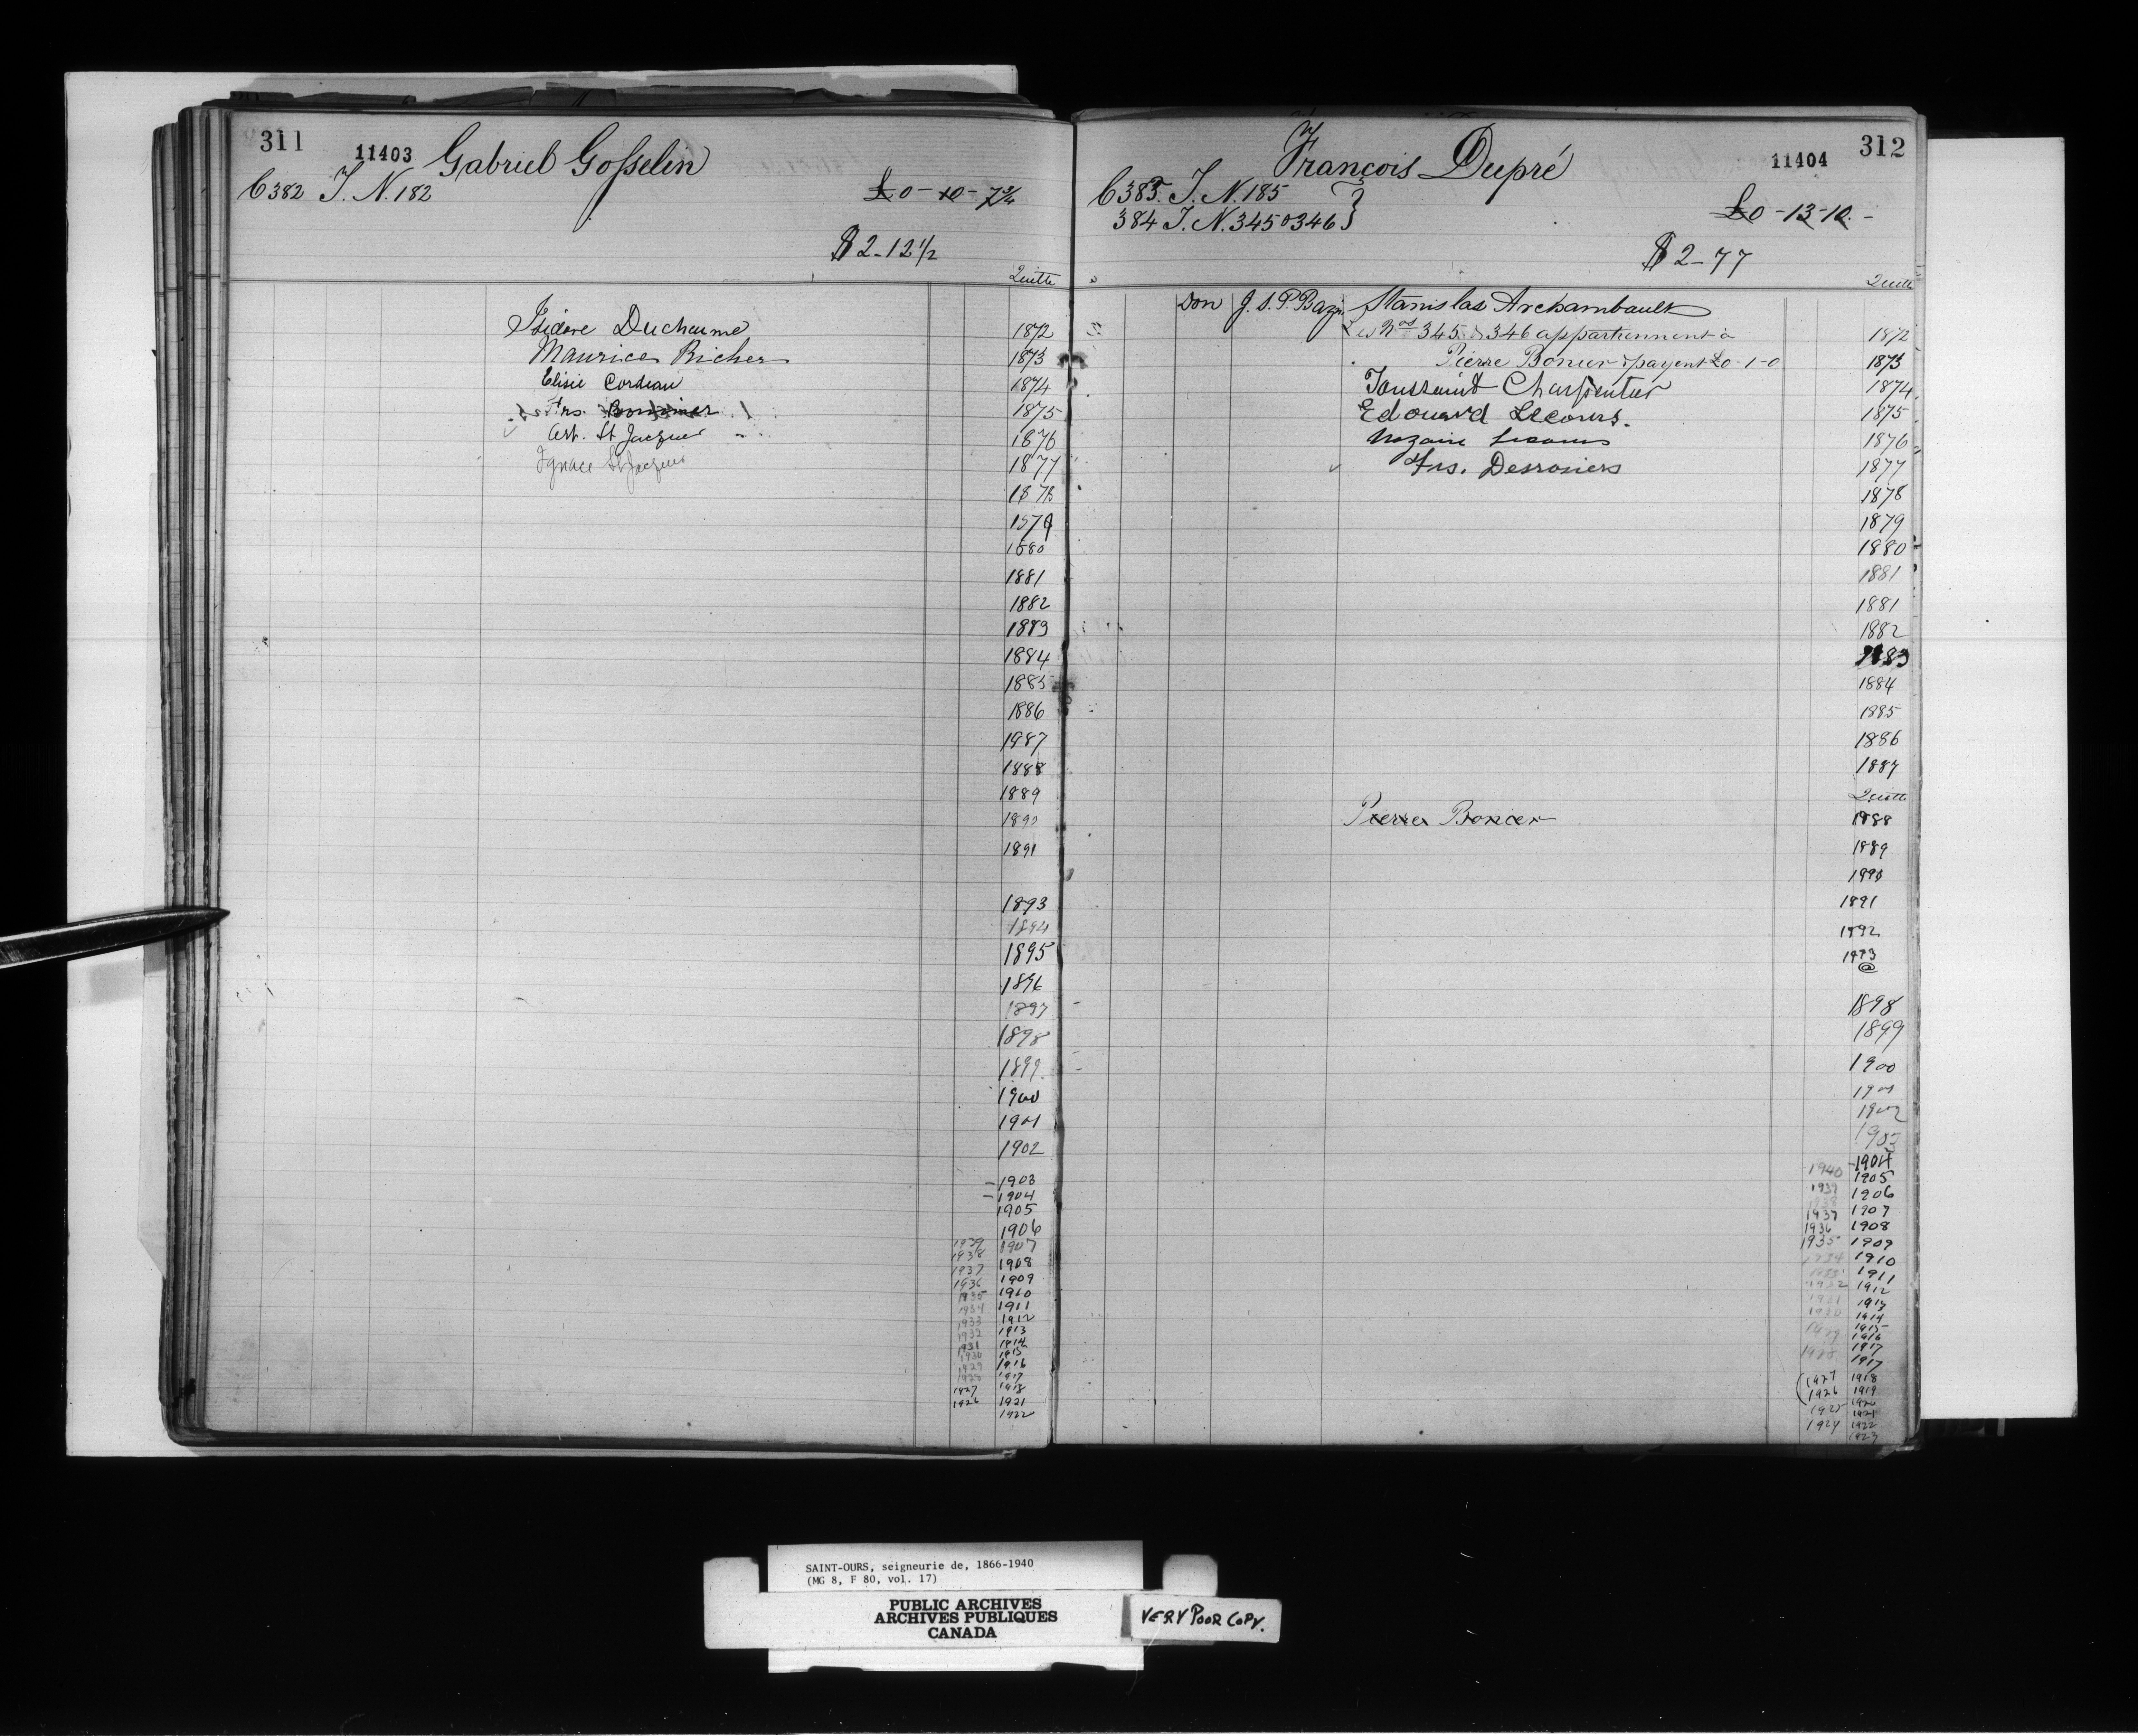 311
11403 Gabriel Gosselin
C 382 T. N. 182
£0-10-7¾
$2-12½
Quitte
Isidore Ducharme 1872
Maurice Richer 1873
Elisie Cordeau 1874
Frs. 1875
Art. St Jacques 1876
Ignace St Jacques 1877
1878
1879
1880
1881
1882
1883
1884
1885
1886
1987
1888
1889
1890
1891
1893
1894
1895
1896
1897
1898
1899
1900
1901
1902
1903
1904
1905
1906
1939 1907
1938 1908
1937 1909
1936 1910
1935 1911
1934 1912
1933 1913
1932 1914
1931 1915
1930 1916
1929 1917
1928 1918
1927 1921
1926 1922
312
François Dupré 11404
C 383. T. N. 185
384 T. N. 345 & 346 }
£0-13-10.-
$2-77
Quitte
Don J. S. P. Bazin Stanislas Archambault
Les Nos 345 & 346 appartiennent à 1872
Pierre Bonier & payent £0-1-0 1873
Toussaint Charpentier 1874
Edouard Lecours. 1875
Nazaire Lecours 1876
Frs. Desrosiers 1877
1878
1879
1880
1881
1881
1882
1883
1884
1885
1886
1887
Quitte
Pierre Bonier 1888
1889
1890
1891
1892
1893
@
1898
1899
1900
1901
1902
1903
1940 1904
1939 1905
1938 1906
1937 1907
1936 1908
1935 1909
1934 1910
1933 1911
1932 1912
1931 1913
1930 1914
1915
1929 1916
1917
1928 1917
1927 1918
1926 1919
1925 1920
1921
1924 1922
1923
SAINT-OURS, seigneurie de, 1866-1940
(MG 8, F 80, vol. 17)
PUBLIC ARCHIVES
ARCHIVES PUBLIQUES
CANADA
VERY POOR COPY.